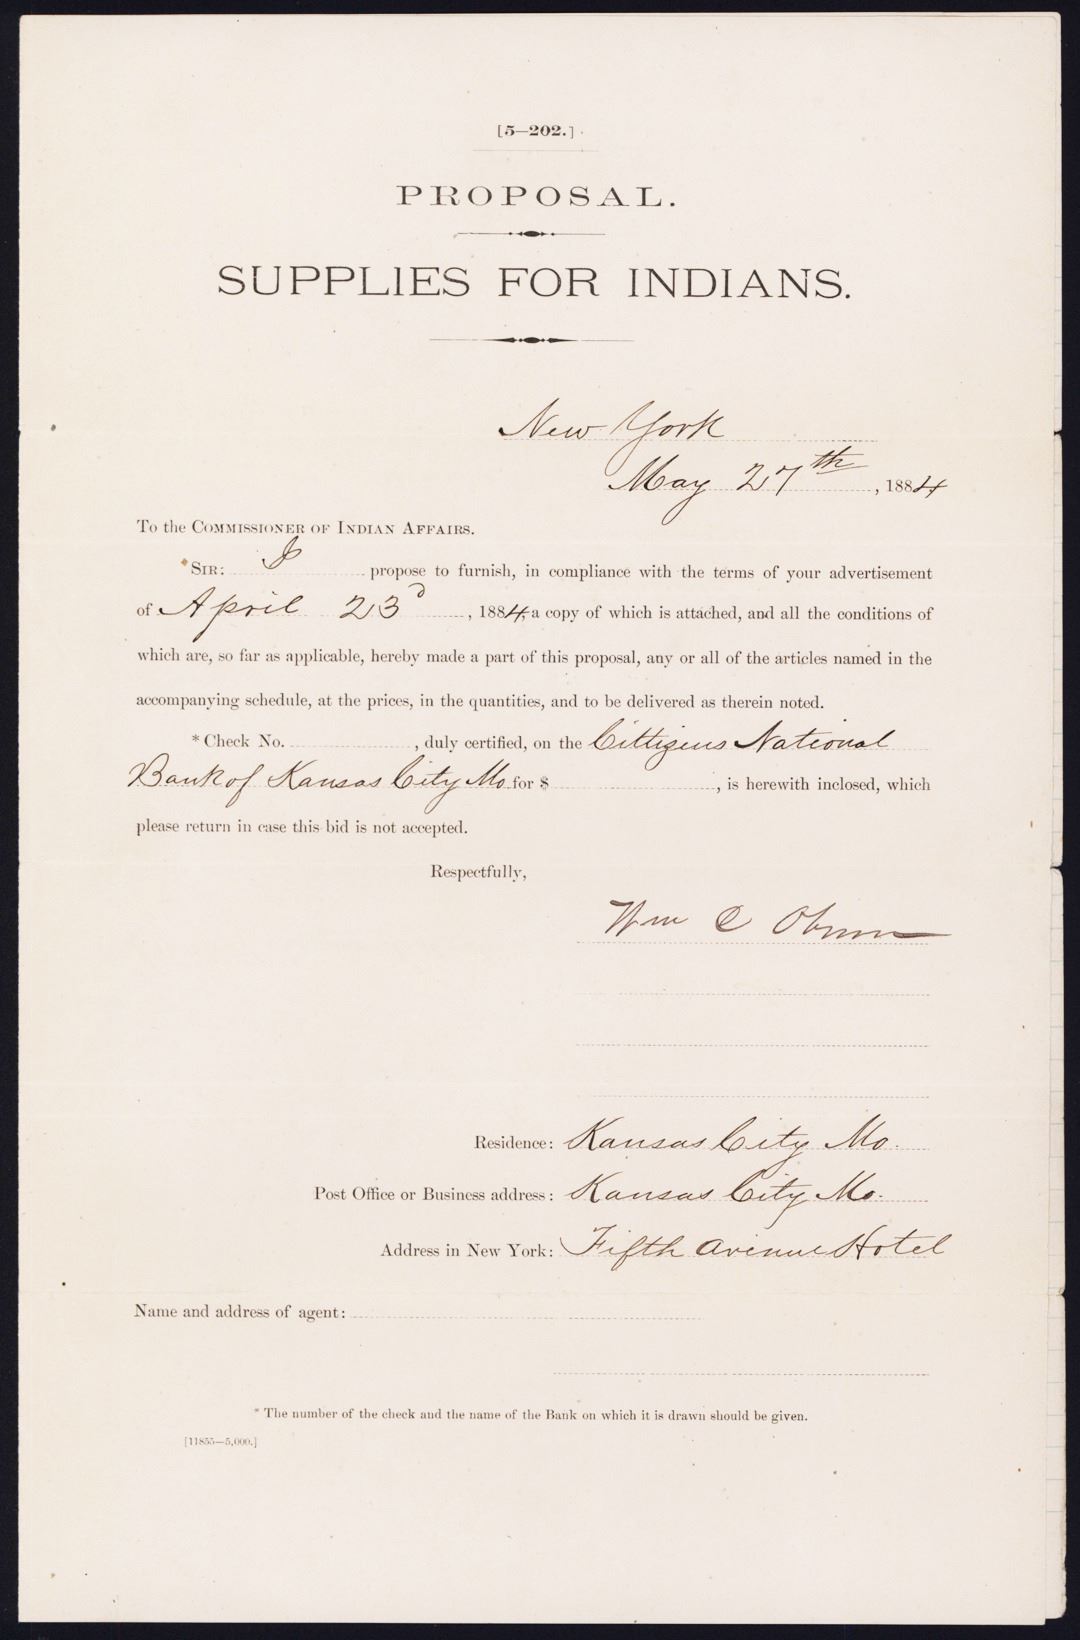 [5—202.]
PROPOSAL.
SUPPLIES FOR INDIANS.
New York
May 27th, 1884
To the COMMISSIONER OF INDIAN AFFAIRS.
SIR: I propose to furnish, in compliance with the terms of your advertisement
of April 23d, 1884, a copy of which is attached, and all the conditions of
which are, so far as applicable, hereby made a part of this proposal, any or all of the articles named in the
accompanying schedule, at the prices, in the quantities, and to be delivered as therein noted.
* Check No. , duly certified, on the Cittizens National
Bank of Kansas City Mo. for $ , is herewith inclosed, which
please return in case this bid is not accepted.
Respectfully,
Wm C
Residence: Kansas City Mo.
Post Office or Business address: Kansas City Mo.
Address in New York: Fifth Avenue Hotel
Name and address of agent:
* The number of the check and the name of the Bank on which it is drawn should be given.
[11855—5,000.]